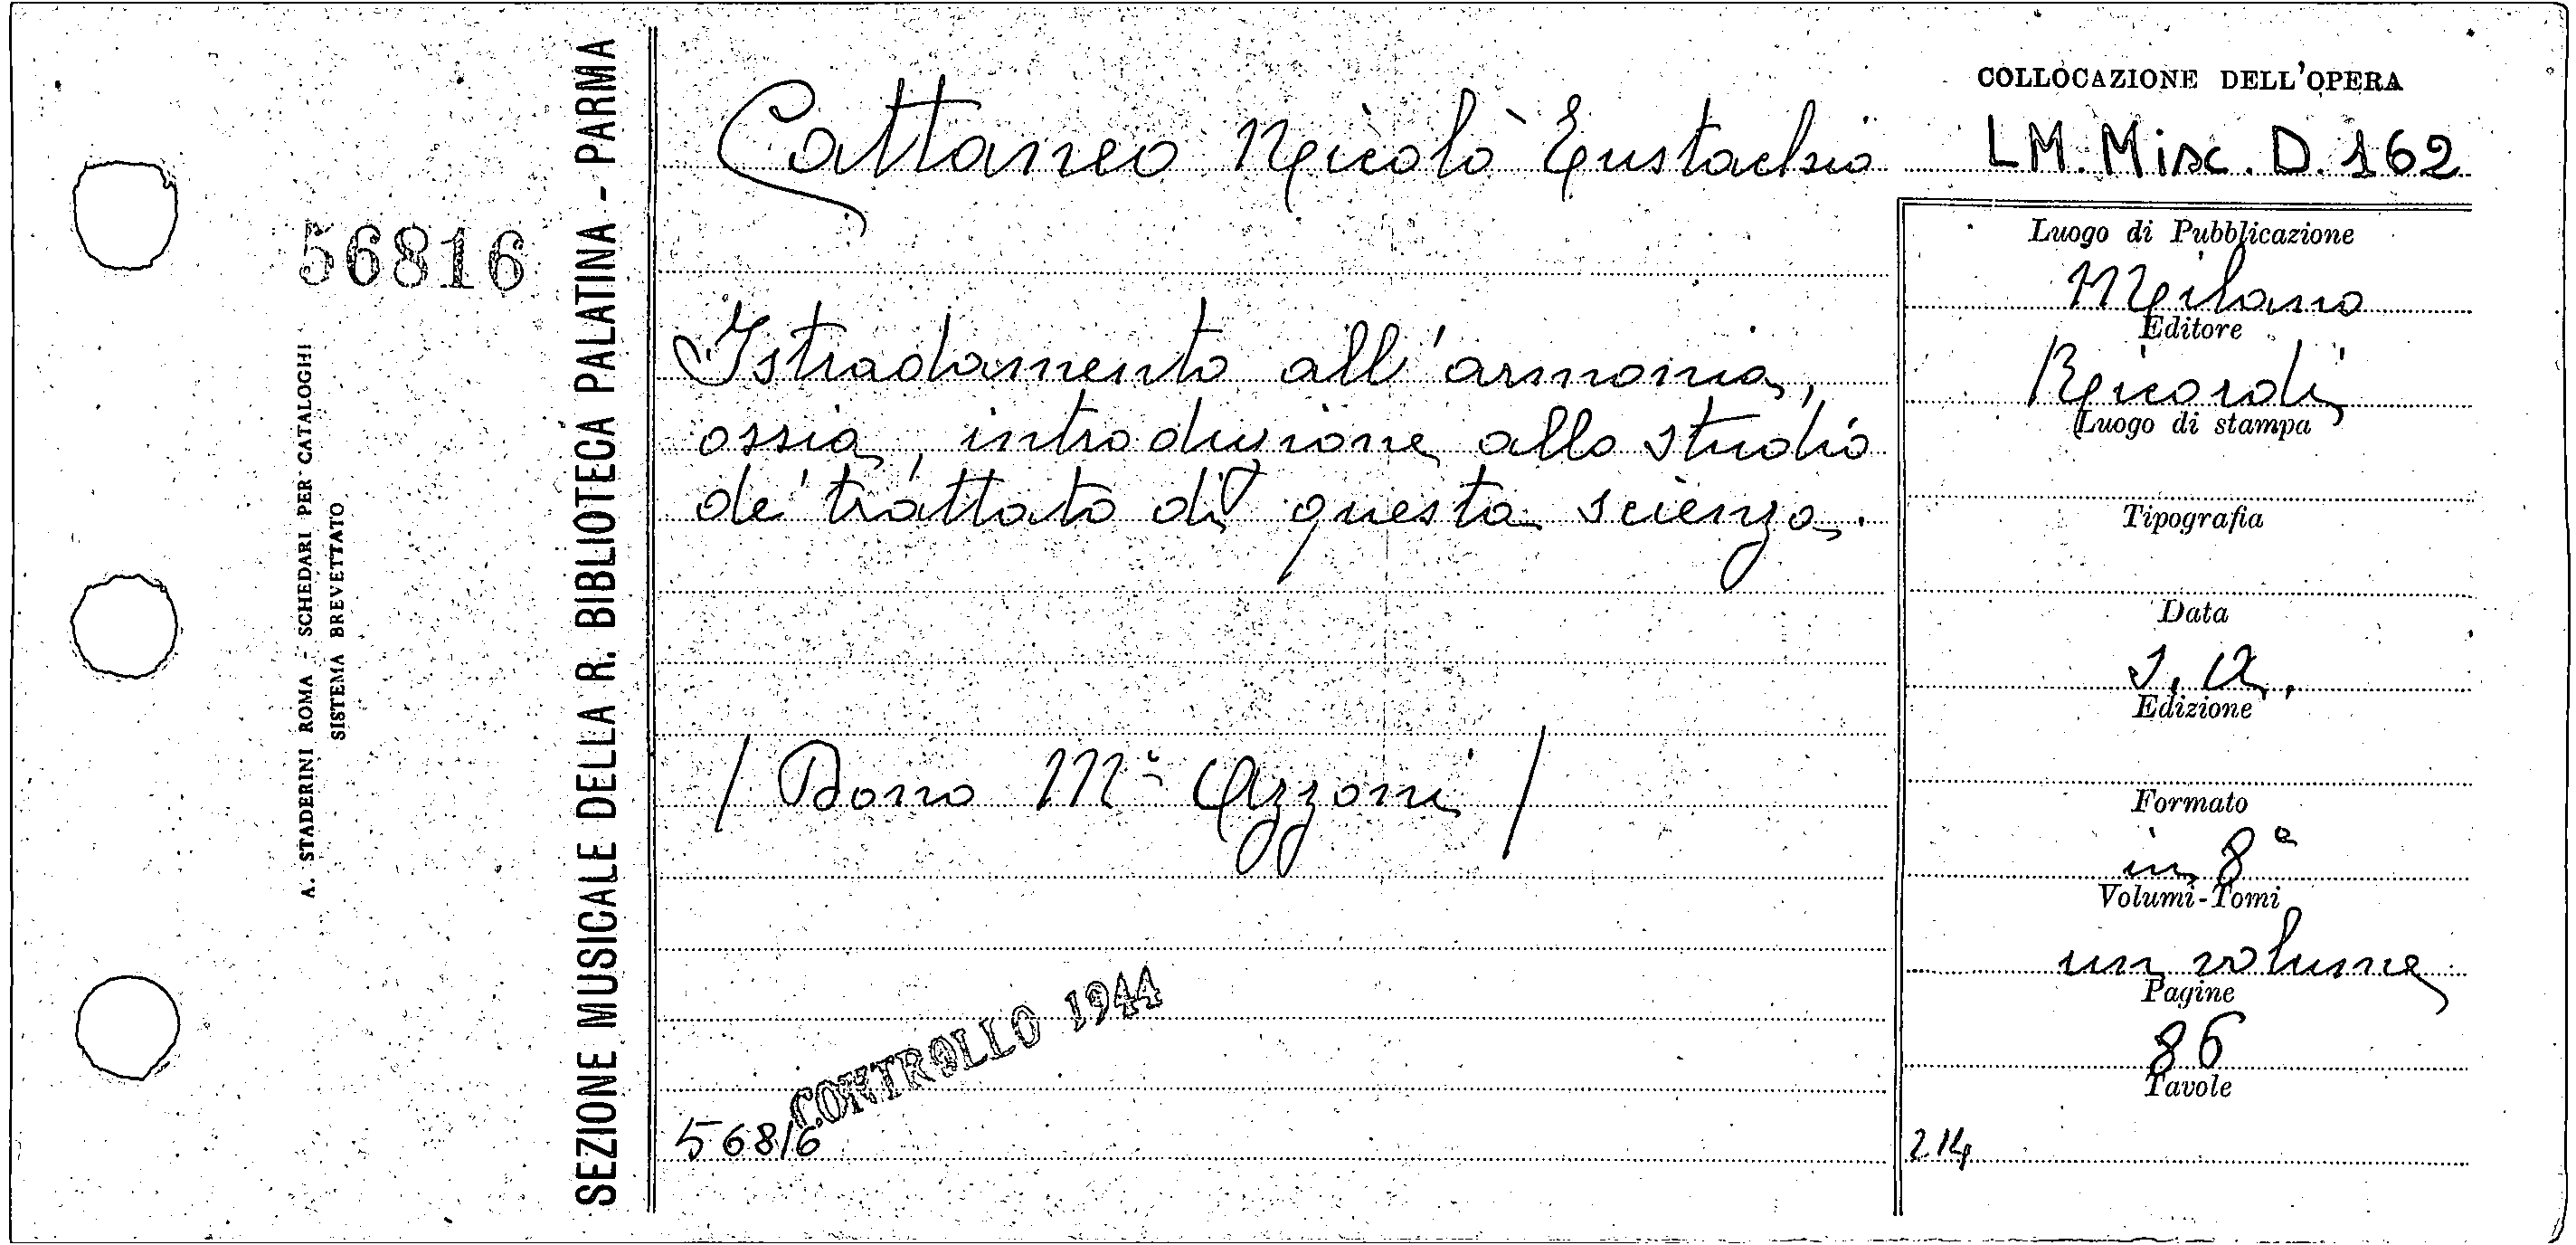 56816
A. STADERINI ROMA - SCHEDARI PER CATALOGHI
SISTEMA BREVETTATO
SEZIONE MUSICALE DELLA R. BIBLIOTECA PALATINA - PARMA
Cattaneo Nicolò Eustachio
Istradamento all'armonia,
ossia, introduzione allo studio
de' trattato di questa scienza.
/ Dono Mº Azzoni /
CONTROLLO 1944
56816
COLLOCAZIONE DELL'OPERA
LM. Misc. D. 162
Luogo di Pubblicazione
Milano
Editore
Ricordi
Luogo di stampa
Tipografia
Data
s. a.
Edizione
Formato
in 8º
Volumi-Tomi
un volume
Pagine
86
Tavole
214